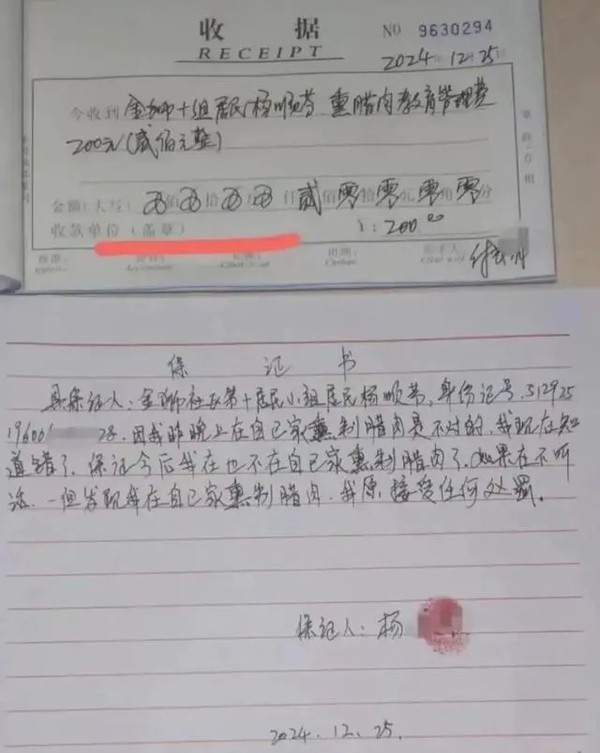 收 据
NO 9630294
RECEIPT
2024年12月25日
今收到 金狮十组居民杨顺芬 熏腊肉教育管理费
200元(贰佰元整)
金额(大写) 佰 拾 万 仟贰佰零拾零元零角零分
收款单位(盖章)
¥:200.00
保 证 书
具保证人:金狮社区第十居民小组居民杨顺芬,身份证号,512925
19600 28.因我昨晚上在自己家熏制腊肉是不对的,我现在知
道错了,保证今后我在也不在自己家熏制腊肉了,如果在不听
话.一但发现我在自己家熏制腊肉.我愿接受任何处罚。
保证人:杨
2024.12.25.